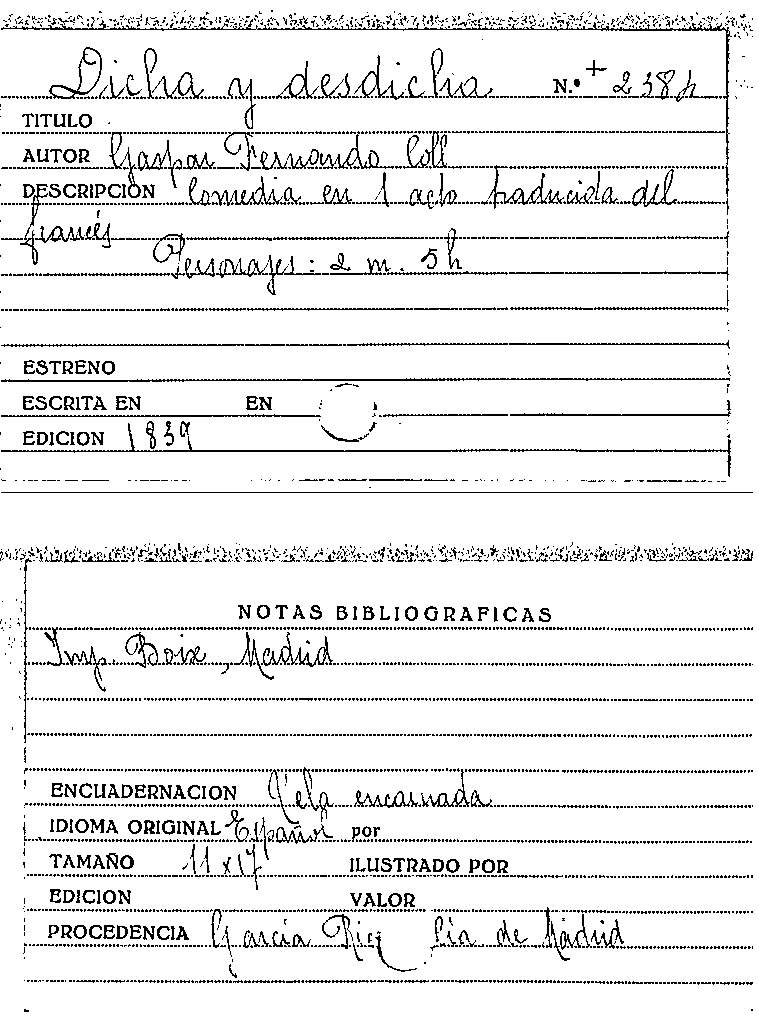 Dicha y desdicha N.º + 2384
TITULO
AUTOR Gaspar Fernando Coll
DESCRIPCION Comedia en 1 acto traducida del
francés
Personajes: 2 m. 5h
ESTRENO
ESCRITA EN EN
EDICION 1839
NOTAS BIBLIOGRAFICAS
Imp. Boix, Madrid
ENCUADERNACION Tela encarnada
IDIOMA ORIGINAL Español por
TAMAÑO 11 x 17 ILUSTRADO POR
EDICION VALOR
PROCEDENCIA García Rico Cía de Madrid